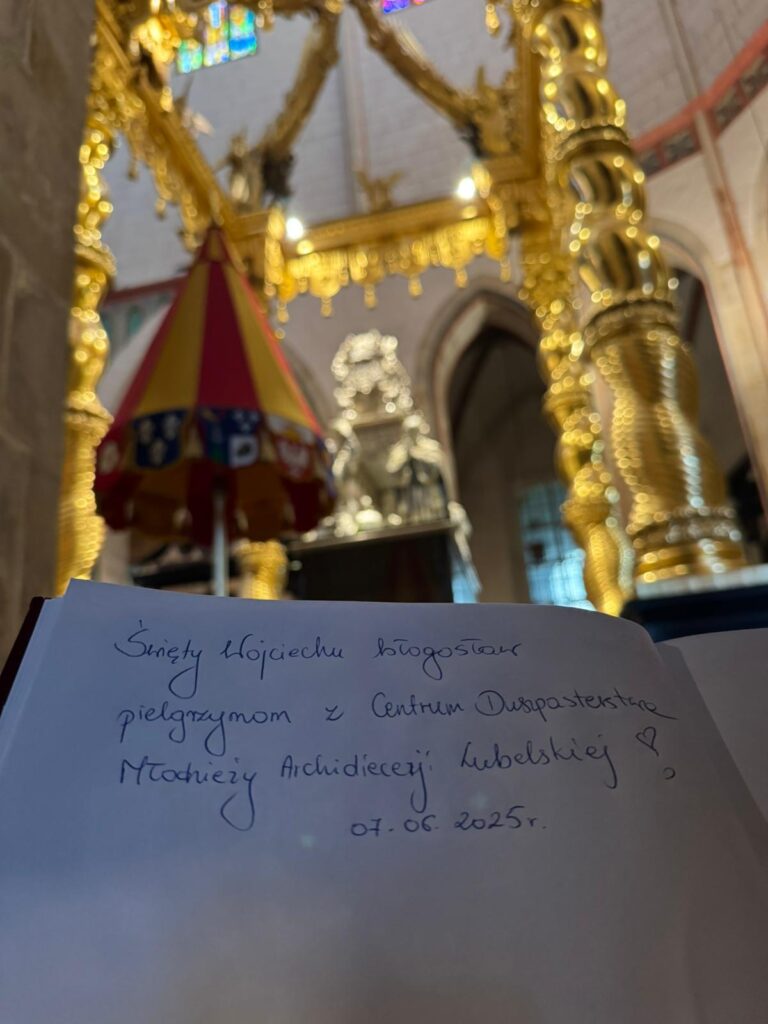 Święty Wojciechu błogosław
pielgrzymom z Centrum Duszpasterstwa
Młodzieży Archidiecezji Lubelskiej ♡
07.06.2025r.